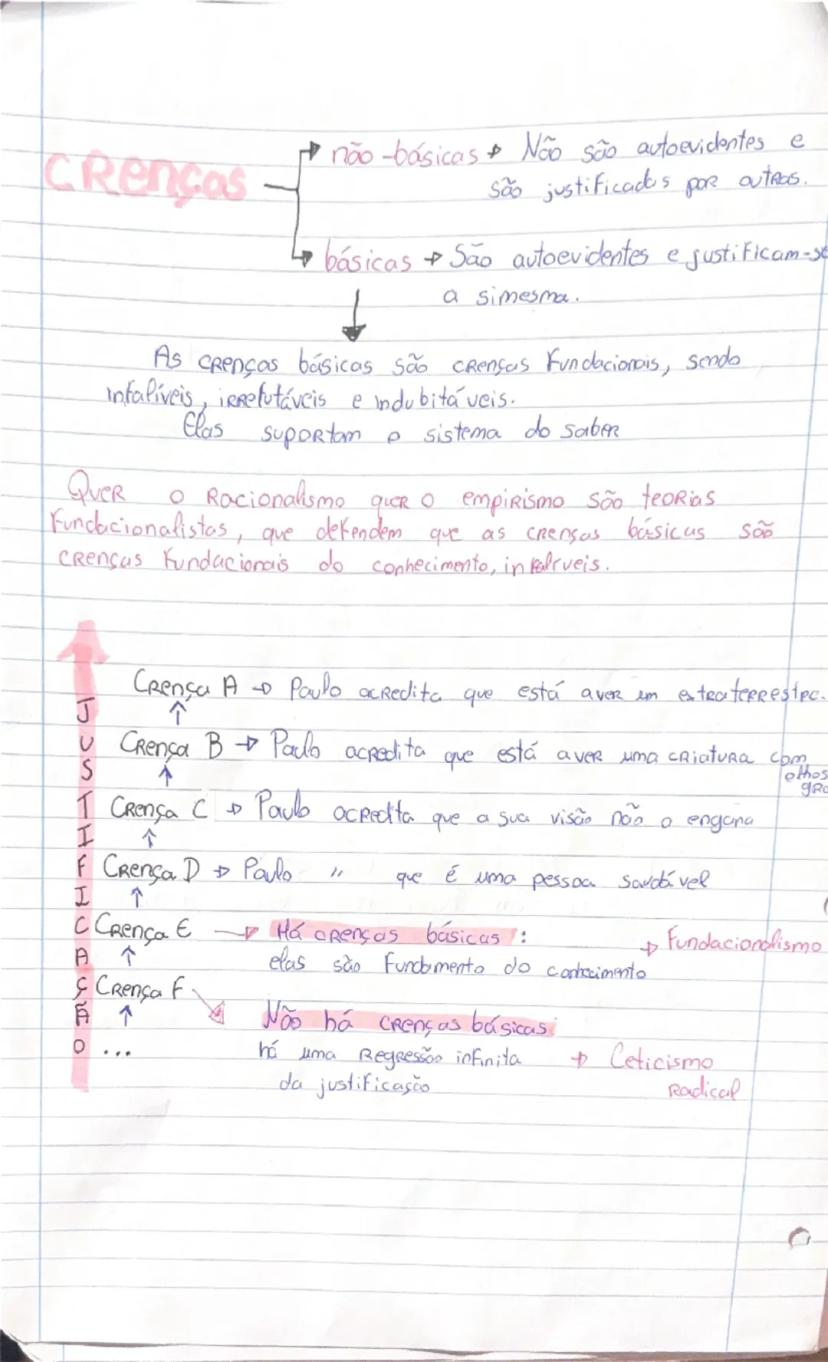 CRenças
não-básicas → Não são autoevidentes e
são justificadas por outras.
básicas → São autoevidentes e justificam-se
a simesma.
As crenças básicas são crenças fundacionais, sendo
infalíveis, irrefutáveis e indubitáveis.
Elas suportam o sistema do saber
Quer o Racionalismo quer o empirismo são teorias
Fundacionalistas, que defendem que as crenças básicas são
crenças fundacionais do conhecimento, infalíveis.
JUSTIFICAÇÃO
Crença A → Paulo acredita que está aver um extraterrestre.
↑
Crença B → Paulo acredita que está aver uma criatura com
olhos
↑
Crença C → Paulo acredita que a sua visão não o engana
↑
Crença D → Paulo " que é uma pessoa saudável
↑
Crença E → Há crenças básicas: → Fundacionalismo
↑ elas são fundamento do conhecimento
Crença F → Não há crenças básicas
↑
... há uma Regressão infinita → Ceticismo
da justificação Radical